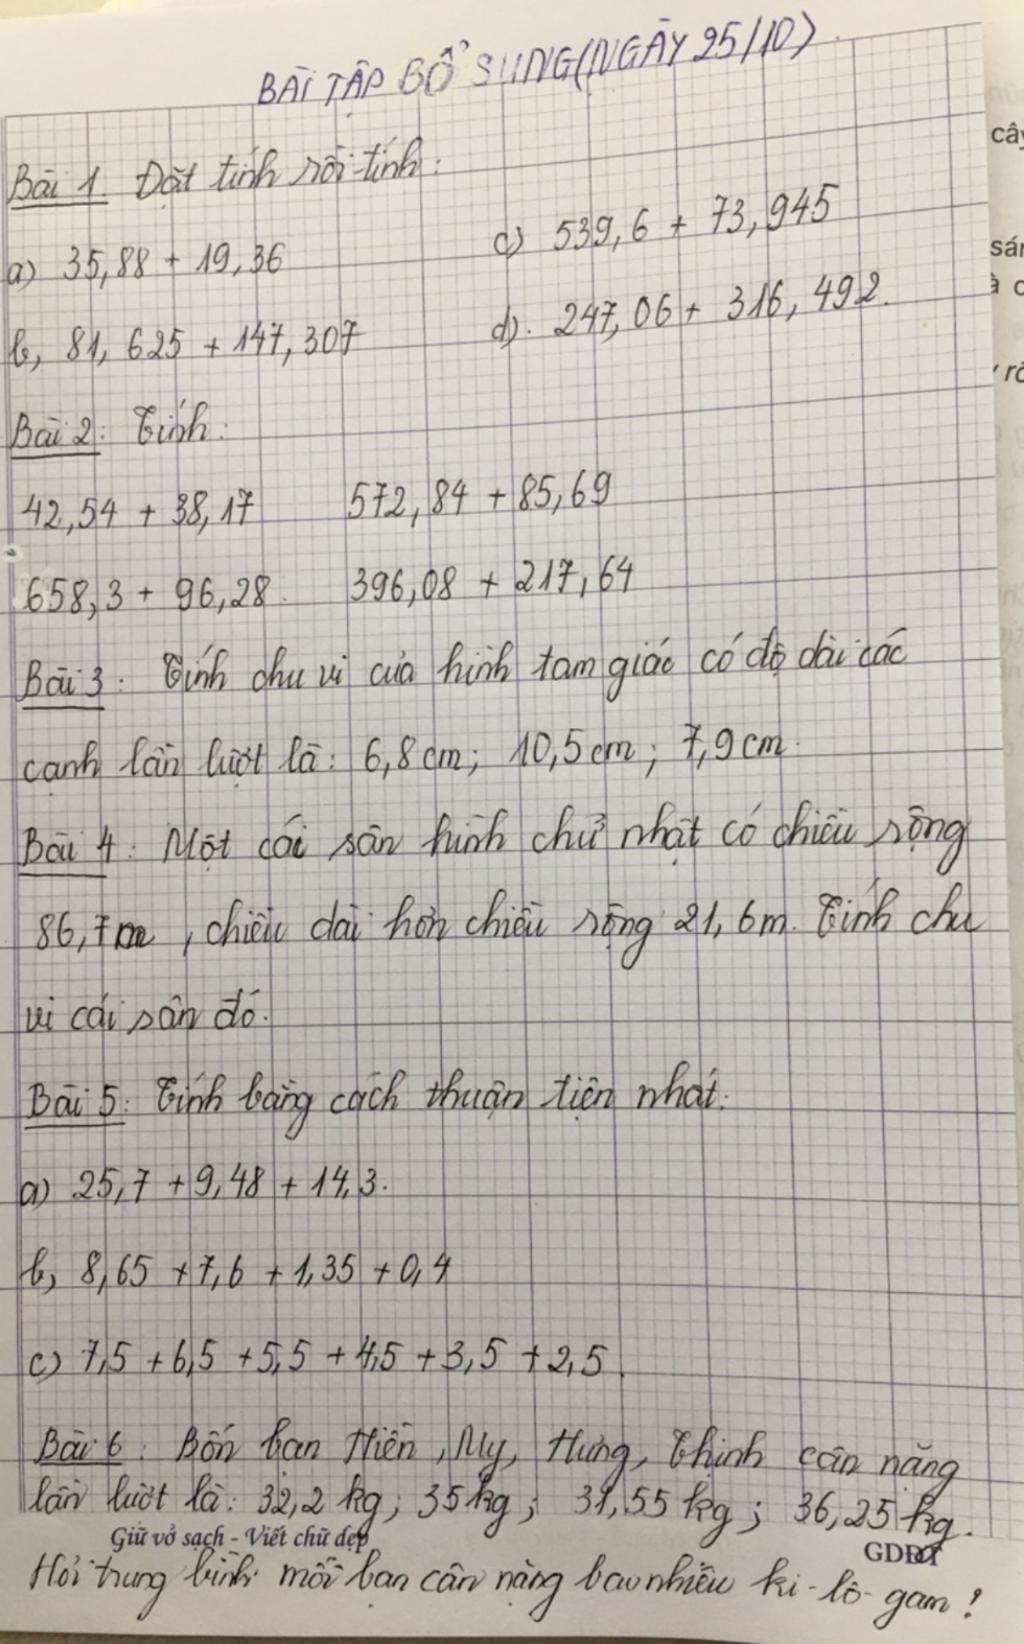 BÀI TẬP BỔ SUNG (NGÀY 25/10)
Bài 1. Đặt tính rồi tính:
a) 35,88 + 19,36
c) 539,6 + 73,945
b, 81,625 + 147,307
d). 247,06 + 316,492.
Bài 2: Tính:
42,54 + 38,17 572,84 + 85,69
658,3 + 96,28. 396,08 + 217,64
Bài 3: Tính chu vi của hình tam giác có độ dài các
cạnh lần lượt là: 6,8 cm; 10,5 cm; 7,9 cm.
Bài 4: Một cái sân hình chữ nhật có chiều rộng
86,7m, chiều dài hơn chiều rộng 21,6m. Tính chu
vi cái sân đó.
Bài 5: Tính bằng cách thuận tiện nhất:
a) 25,7 + 9,48 + 14,3.
b, 8,65 + 7,6 + 1,35 + 0,4
c) 7,5 + 6,5 + 5,5 + 4,5 + 3,5 + 2,5.
Bài 6: Bốn bạn Hiền, My, Hưng, Thịnh cân nặng
lần lượt là: 32,2 kg; 35kg; 31,55 kg; 36,25 kg.
Giữ vở sạch - Viết chữ đẹp
Hỏi trung bình mỗi bạn cân nặng bao nhiêu ki-lô-gam!
cây